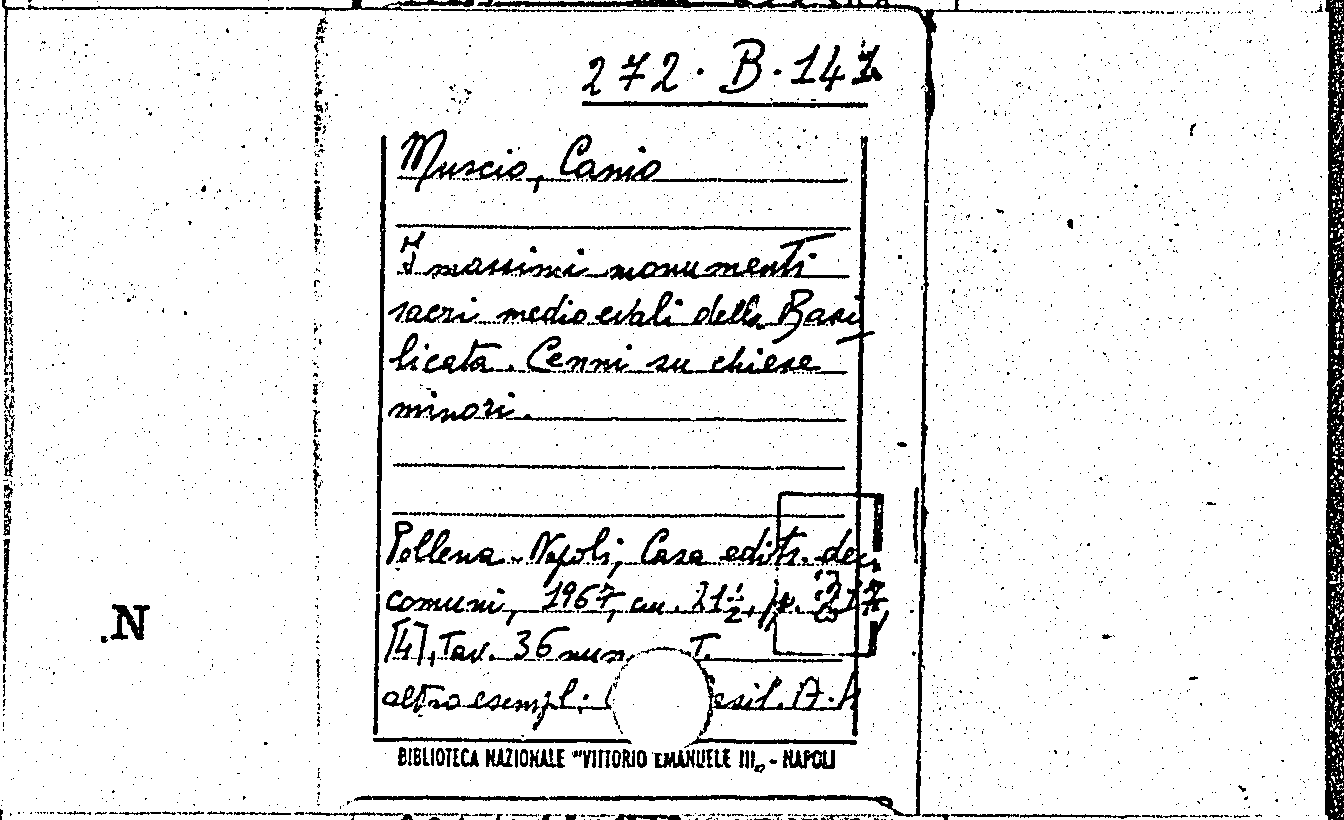 272. B. 147
Muscio, Canio
I massimi monumenti
sacri medioevali della Basi
licata. Cenni su chiese
minori.
Pollena - Napoli, Casa editr. dei
comuni, 1967, cm. 21½, pp. 217
[4], Tav. 36 num. T.
altro esempl.: A.
.N
BIBLIOTECA NAZIONALE "VITTORIO EMANUELE III„ - NAPOLI